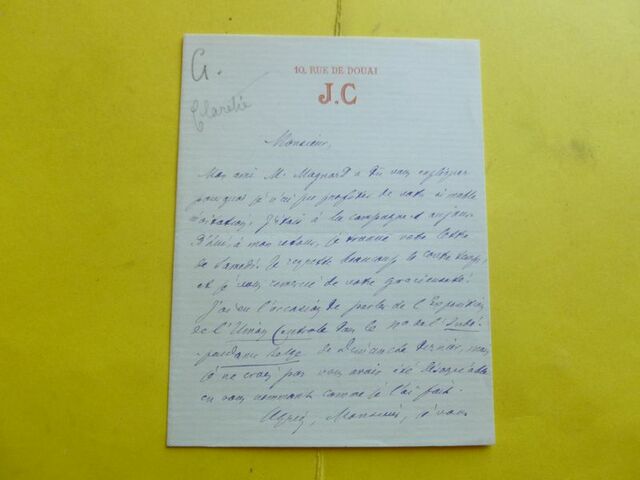 G.
Claretie
10, RUE DE DOUAI
J.C
Monsieur,
Mon ami M. Magnard a dû vous expliquer
pourquoi je n'ai pu profiter de votre si aimable
invitation. J'étais à la campagne et aujour-
d'hui, à mon retour, je trouve votre lettre
de Samedi. Je regrette beaucoup le contre temps
et je vous remercie de votre gracieuseté!
J'ai eu l'occasion de parler de l'Exposition
de l'Union Centrale dans le journal l'Indé-
pendance belge de Dimanche dernier, mais
je ne crois pas vous avoir été désagréable
en vous nommant comme je l'ai fait.
Agréez, Monsieur, je vous